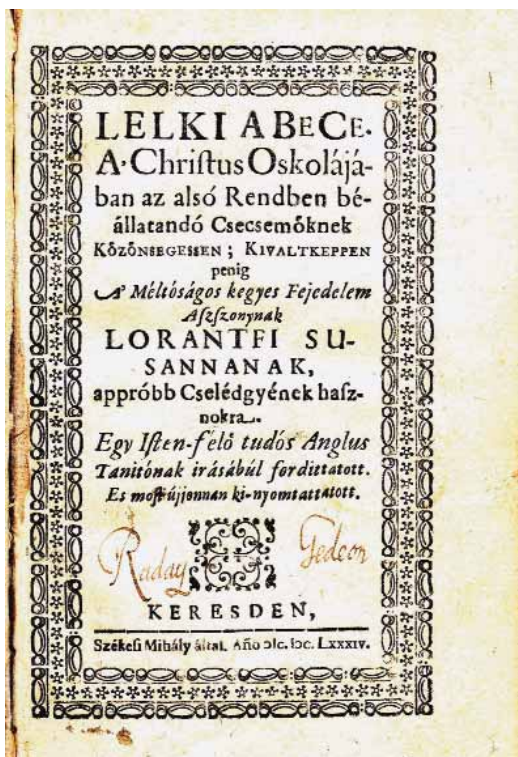 LELKI ABECE.
A·Chriſtus Oskolájá-
ban az alsó Rendben bé-
állatandó Csecsemőknek
KŐZŐNSEGESSEN ; KIVALTKEPPEN
penig
A' Méltóságos kegyes Fejedelem
Aſzſzonynak
LORANTFI SU-
SANNANAK,
appróbb Cselédgyének haſz-
nokra.
Egy Iſten-félő tudós Anglus
Tanitónak irásábúl fordittatott.
Es moſt újjonnan ki-nyomtattatott.
Raday Gedeon
KERESDEN,
Székeſi Mihály által. Año ↄIc. Iↄc. LXXXIV.